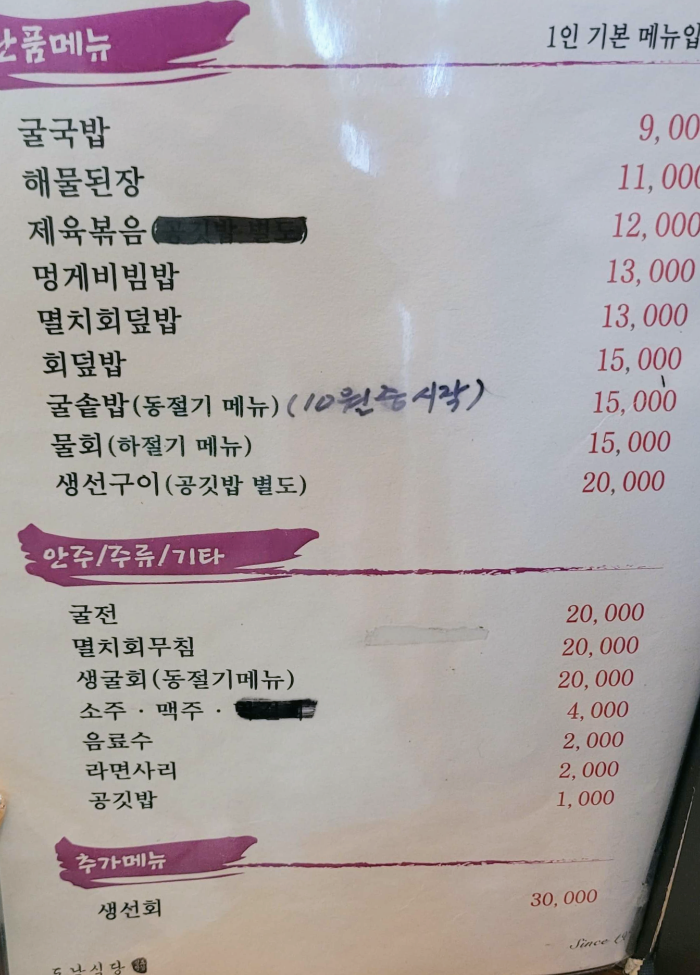 단품메뉴
1인 기본 메뉴입
굴국밥 9,00
해물된장 11,000
제육볶음(공깃밥 별도) 12,000
멍게비빔밥 13,000
멸치회덮밥 13,000
회덮밥 15,000
굴솥밥(동절기 메뉴) (10월중 시작) 15,000
물회(하절기 메뉴) 15,000
생선구이(공깃밥 별도) 20,000
안주/주류/기타
굴전 20,000
멸치회무침 20,000
생굴회(동절기메뉴) 20,000
소주 · 맥주 · 4,000
음료수 2,000
라면사리 2,000
공깃밥 1,000
추가메뉴
생선회 30,000
Since
식당